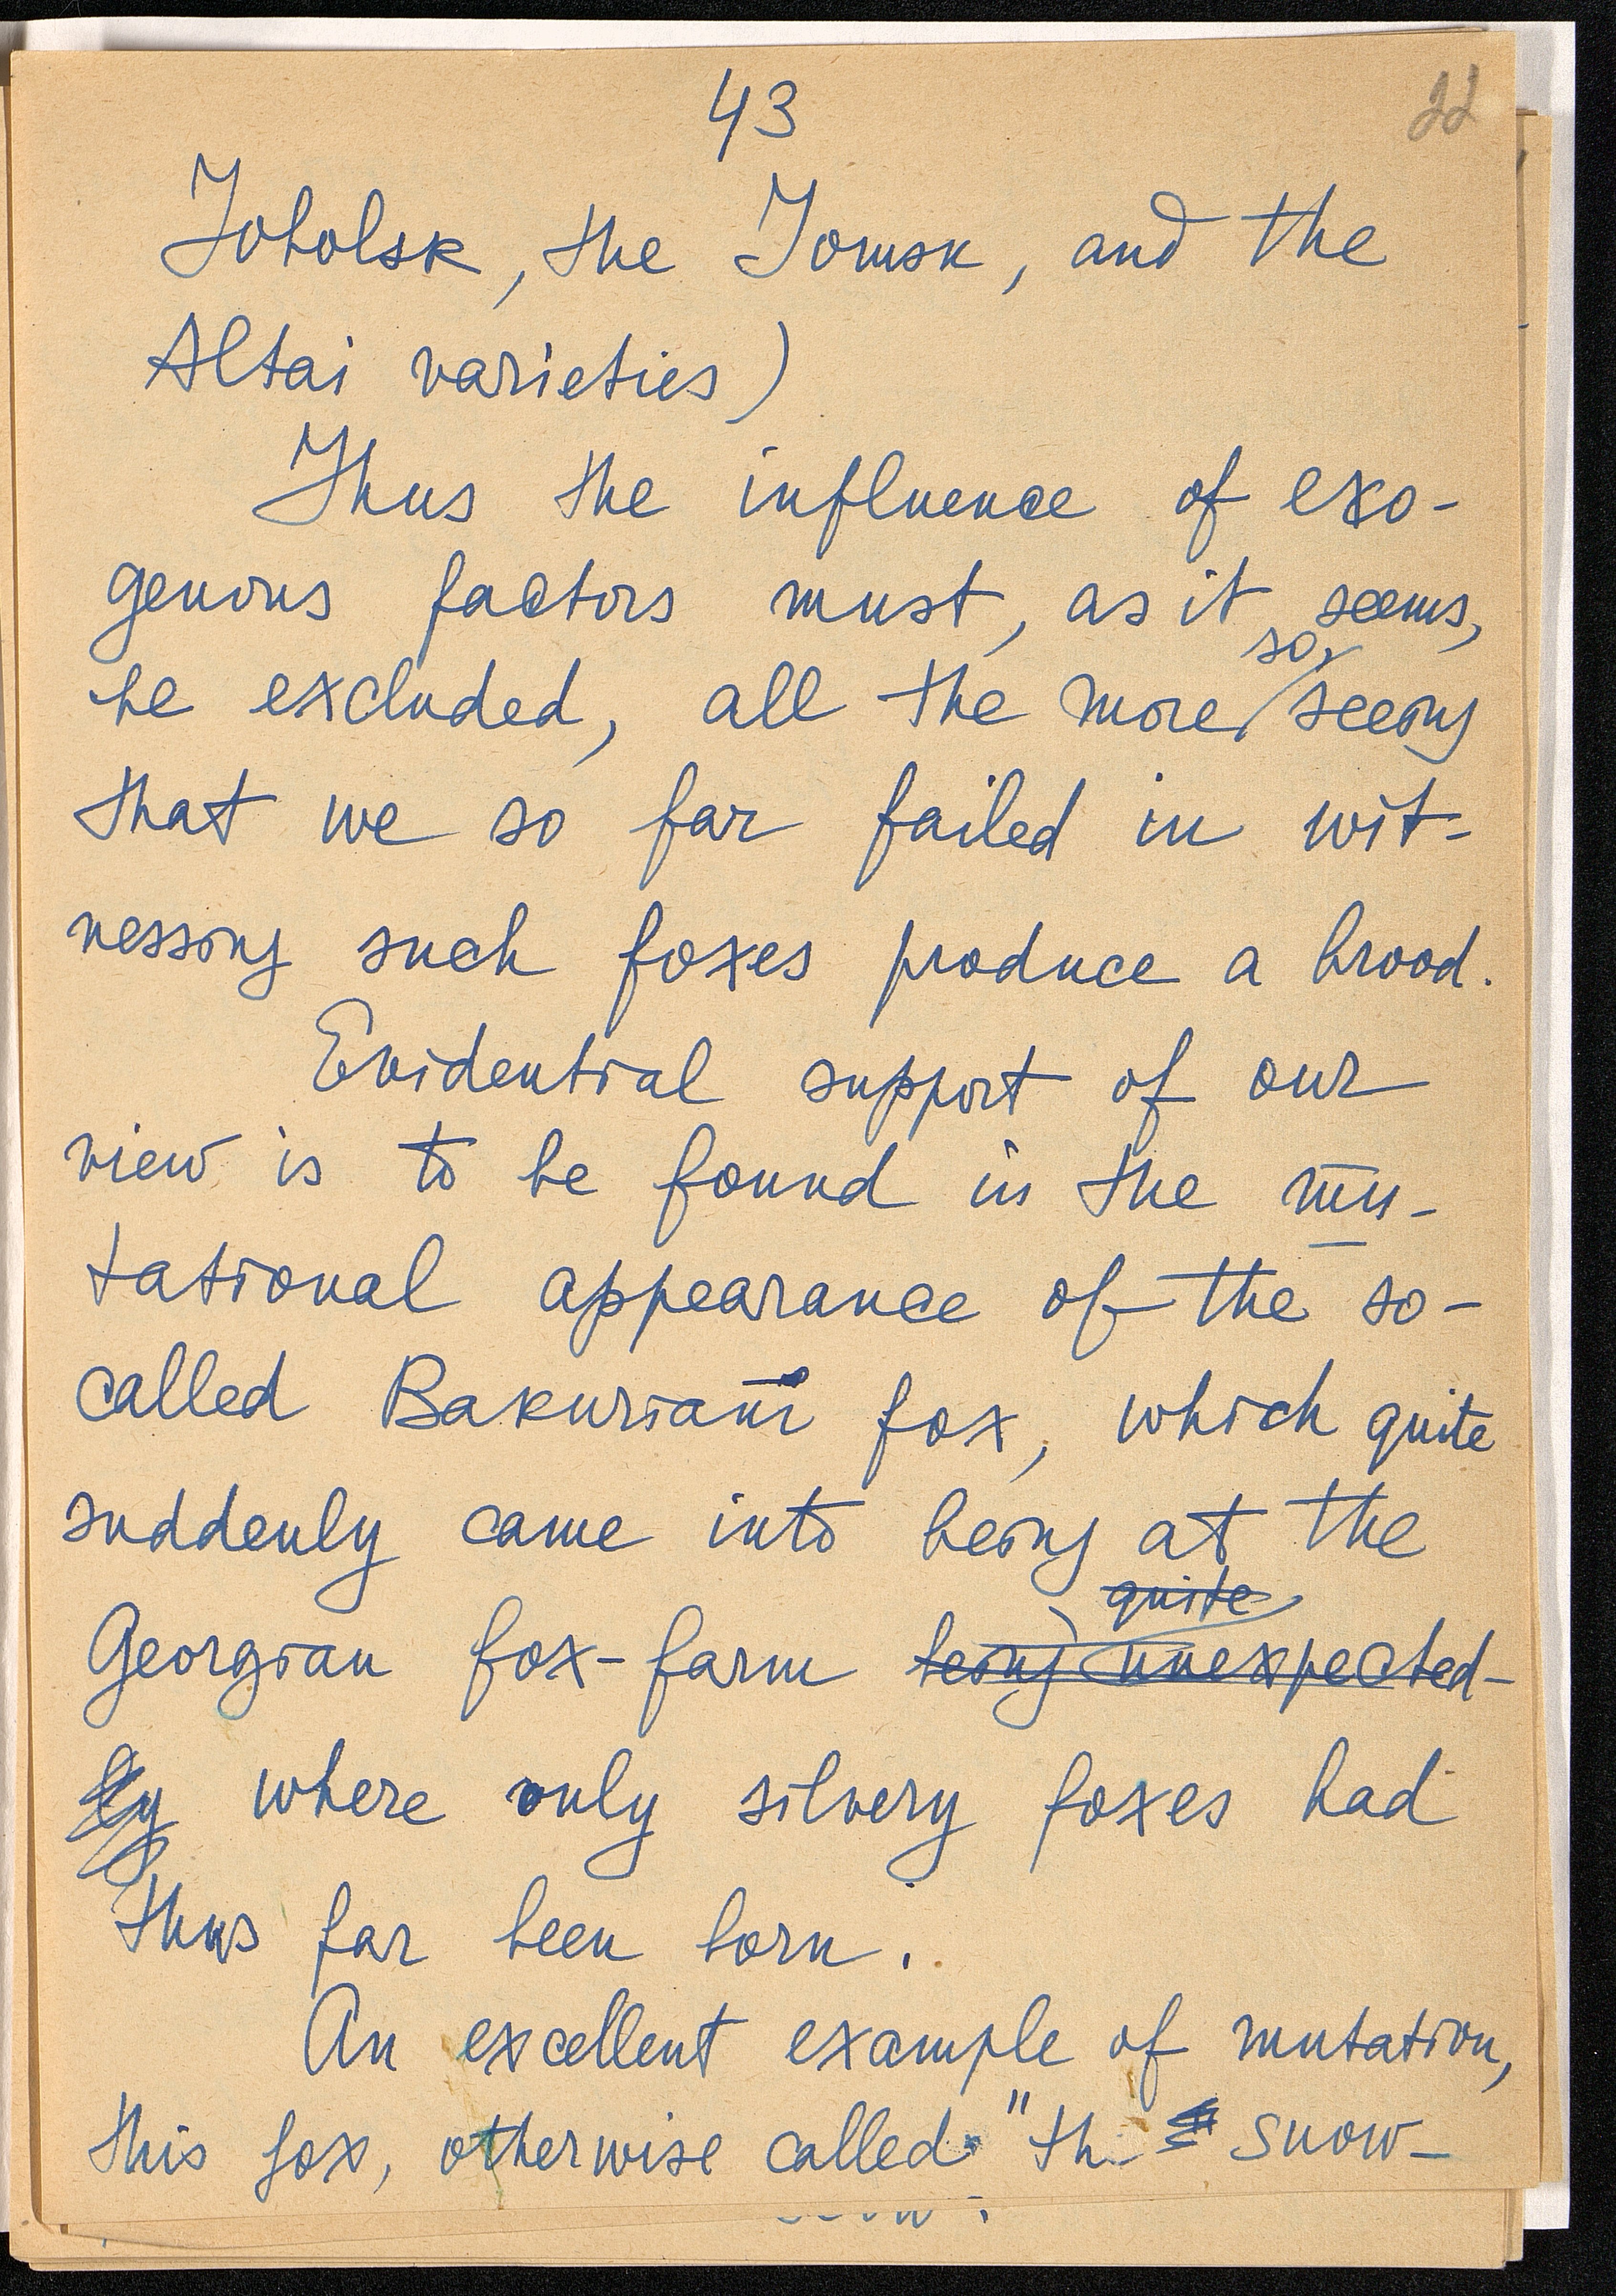 43
22
Tobolsk, the Tomsk, and the
Altai varieties)
Thus the influence of exo-
genous factors must, as it seems,
so,
be excluded, all the more, seeing
that we so far failed in wit-
nessing such foxes produce a brood.
Evidential support of our
view is to be found in the mu-
tational appearance of the so-
called Bakuriani fox, which quite
suddenly came into being at the
quite
Georgian fox-farm being unexpected-
ly where only silvery foxes had
thus far been born.
An excellent example of mutation,
this fox, otherwise called "the snow-